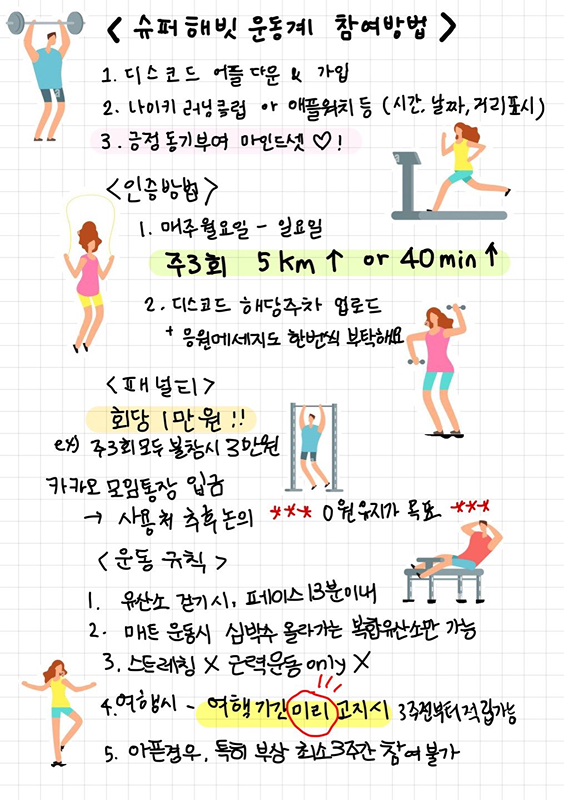 < 슈퍼해빗 운동계 참여방법 >
1. 디스코드 어플 다운 & 가입
2. 나이키 러닝클럽 or 애플워치 등 (시간, 날짜, 거리표시)
3. 긍정 동기부여 마인드셋 ♡!
<인증방법>
1. 매주 월요일 - 일요일
주3회 5km↑ or 40min↑
2. 디스코드 해당주차 업로드
+ 응원메세지도 한번씩 부탁해요
<패널티>
회당 1만원!!
ex) 주3회 모두 불참시 3만원
카카오 모임통장 입금
→ 사용처 추후논의 *** 0원유지가 목표 ***
<운동 규칙>
1. 유산소 걷기시, 페이스 13분이내
2. 매트 운동시 심박수 올라가는 복합유산소만 가능
3. 스트레칭 X 근력운동 only X
4. 여행시 - 여행기간 미리 고지시 3주전부터 적립가능
5. 아픈경우, 특히 부상 최소3주간 참여불가